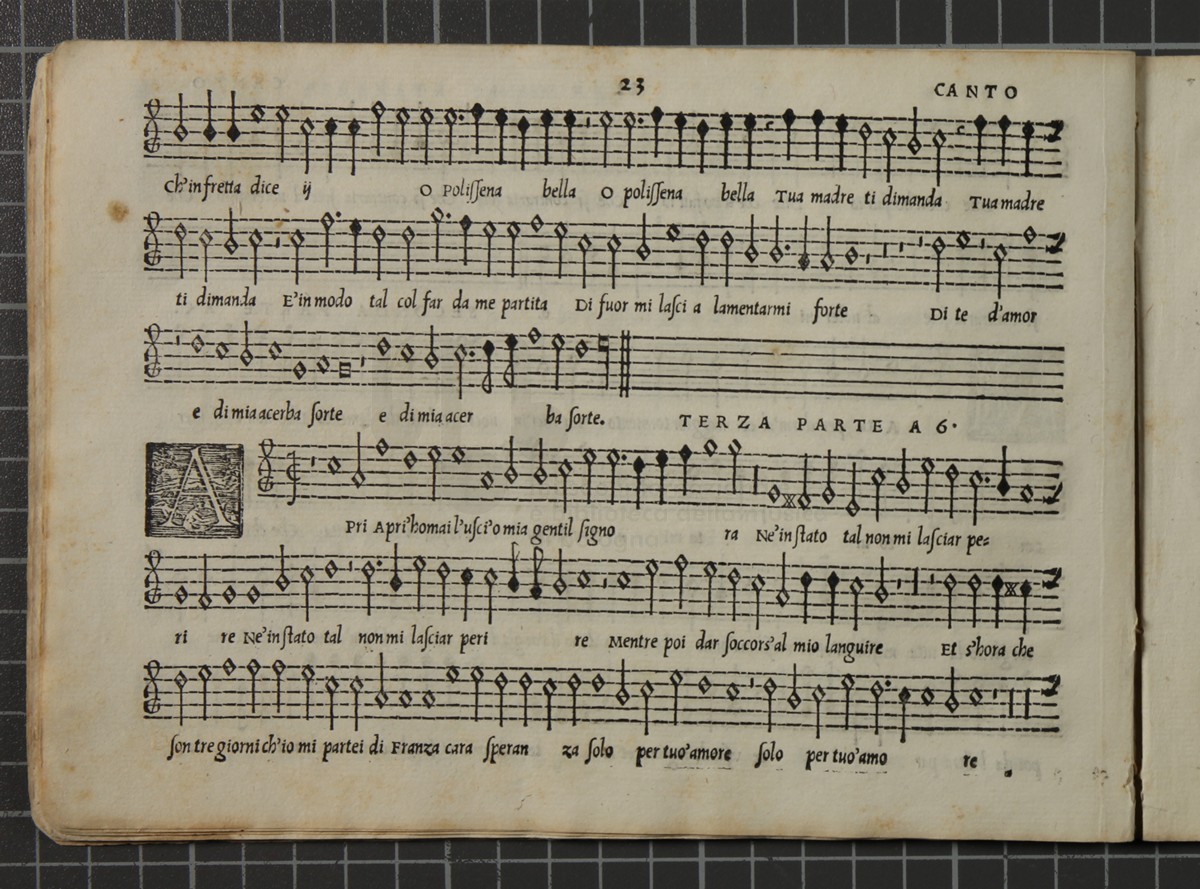 23 CANTO
Ch'in fretta dice ij O Polissena bella O polissena bella Tua madre ti dimanda Tua madre
ti dimanda E'in modo tal col far da me partita Di fuor mi lasci a lamentarmi forte Di te d'amor
e di mia acerba sorte e di mia acer ba sorte.
TERZA PARTE A 6.
A
Pri Apri'homai l'usci'o mia gentil signo ra Ne'in stato tal non mi lasciar pe=
ri re Ne'in stato tal non mi lasciar peri re Mentre poi dar soccors'al mio languire Et s'hora che
son tre giorni ch'io mi partei di Franza cara speran za solo per tuo'amore solo per tuo'amo re